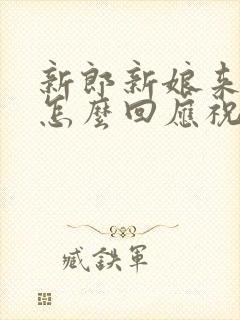 新郎新娘来
怎麼回應祝
臧鉄軍